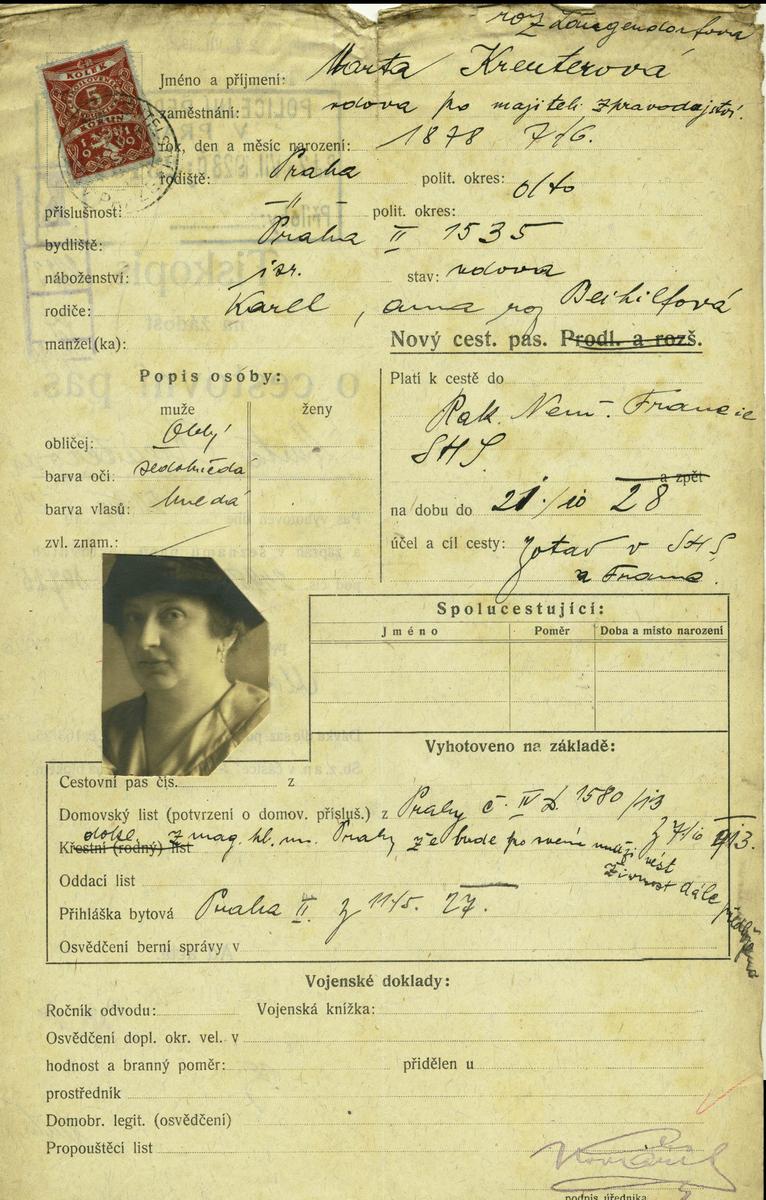 roz Langendorfová
KOLEK
5
KORUN
1919
Jméno a příjmení: Marta Kreuterová
zaměstnání: vdova po majiteli zpravodajství.
rok, den a měsíc narození: 1878 7/6.
rodiště: Praha polit. okres: dto
příslušnost: -"- polit. okres:
bydliště: Praha II 1535
náboženství: isr. stav: vdova
rodiče: Karel, Anna roz Beihilfová
manžel(ka):
Nový cest. pas. Prodl. a rozš.
Popis osoby:
muže ženy
obličej: Oblý
barva očí: šedohnědá
barva vlasů: hnědá
zvl. znam.:
Platí k cestě do
Rak. Něm. Francie
SHS
a zpět
na dobu do 21/10 28
účel a cíl cesty: zotav v SHS
a Franc.
Spolucestující:
Jméno Poměr Doba a místo narození
Vyhotoveno na základě:
Cestovní pas čís. z
Domovský list (potvrzení o domov. přísluš.) z Prahy č. IV D. 1580/13
z 7/10 913.
Křestní (rodný) list
dokl. z mag. hl. m. Prahy, že bude po svém muži vést
živnost dále
Oddací list
Přihláška bytová Praha II. z 11/5. 27.
Osvědčení berní správy v
Vojenské doklady:
Ročník odvodu: Vojenská knížka:
Osvědčení dopl. okr. vel. v
hodnost a branný poměr: přidělen u
prostředník
Domobr. legit. (osvědčení)
Propouštěcí list
podpis úředníka